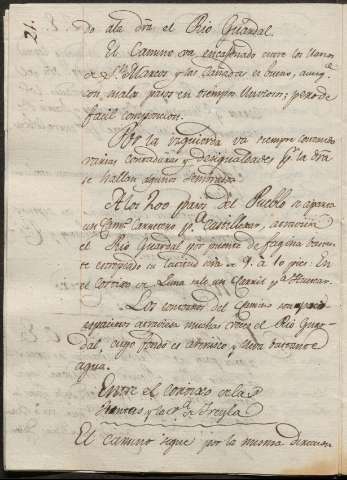 21.
do ala dra el Rio Guardal.
El Camino va encajonado entre los llanos
de Sn Marcos y las Cañadas es bueno, aunqe
con malos pasos en tiempo lluvioso; pero de
facil composicion.
Por la izquierda va siempre costeando
varias cortaduras y desigualdades pr la dra
se hallan algunos sembrados.
A los 400 pasos del Pueblo se aparta
un Camo Carretero pa Castellar, atraviesa
el Rio Guardal por puente de fagina bastante
estropeado su latitud será de 9 a 10 pies: En
el Cortijo de Luna sale un Carril pa Huescar.
Los contornos del Camino son
espaciosos atraviesa muchas veces el Rio Guar-
dal, cuyo fondo es arenisco y lleva bastante
agua.
Entre el cortijo de las
Hontas y la Va de Freyla
El camino sigue por la misma direccion